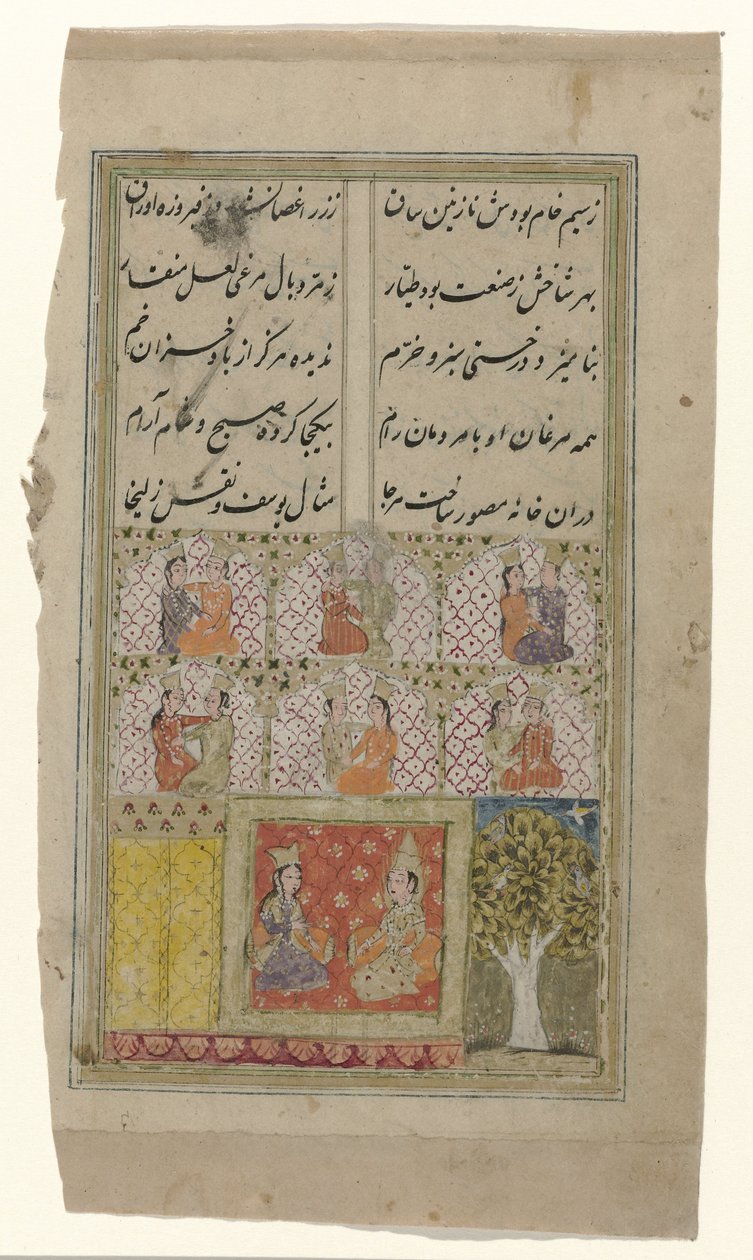 زسیم خام بودش نازنین ساق ززر اغصانش وز فیروزه اوراق
بهر شاخش زصنعت بود طیّار زمرّد بال مرغی لعل منقار
بنا میزد درختی سبز و خرّم ندیده هرکز از باد خزان خم
همه مرغان او با مردمان رام بیکجا کرده صبح و شام آرام
دران خانهٔ مصور ساخت هرجا مثال یوسف و نقش زلیخا